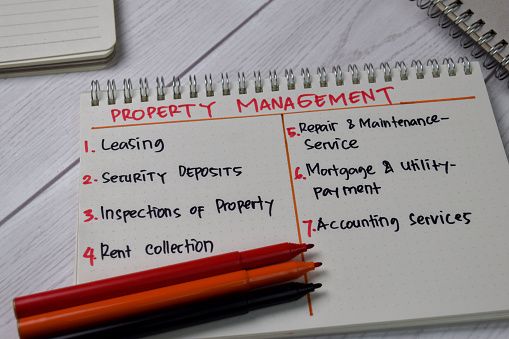 PROPERTY MANAGEMENT
1. Leasing
2. SECURITY DEPOSITS
3. Inspections of Property
4 Rent collection
5. Repair & Maintenance-
Service
6. Mortgage & Utility-
payment
7. Accounting Services